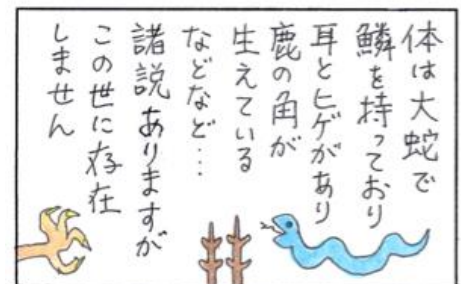 体は大蛇で
鱗を持っており
耳とヒゲがあり
鹿の角が
生えている
などなど…
諸説ありますが
この世に存在
しません